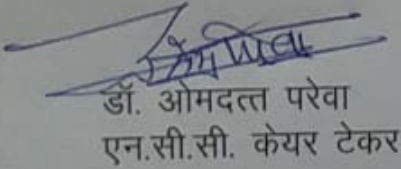 डॉ. ओमदत्त परेवा
एन.सी.सी. केयर टेकर